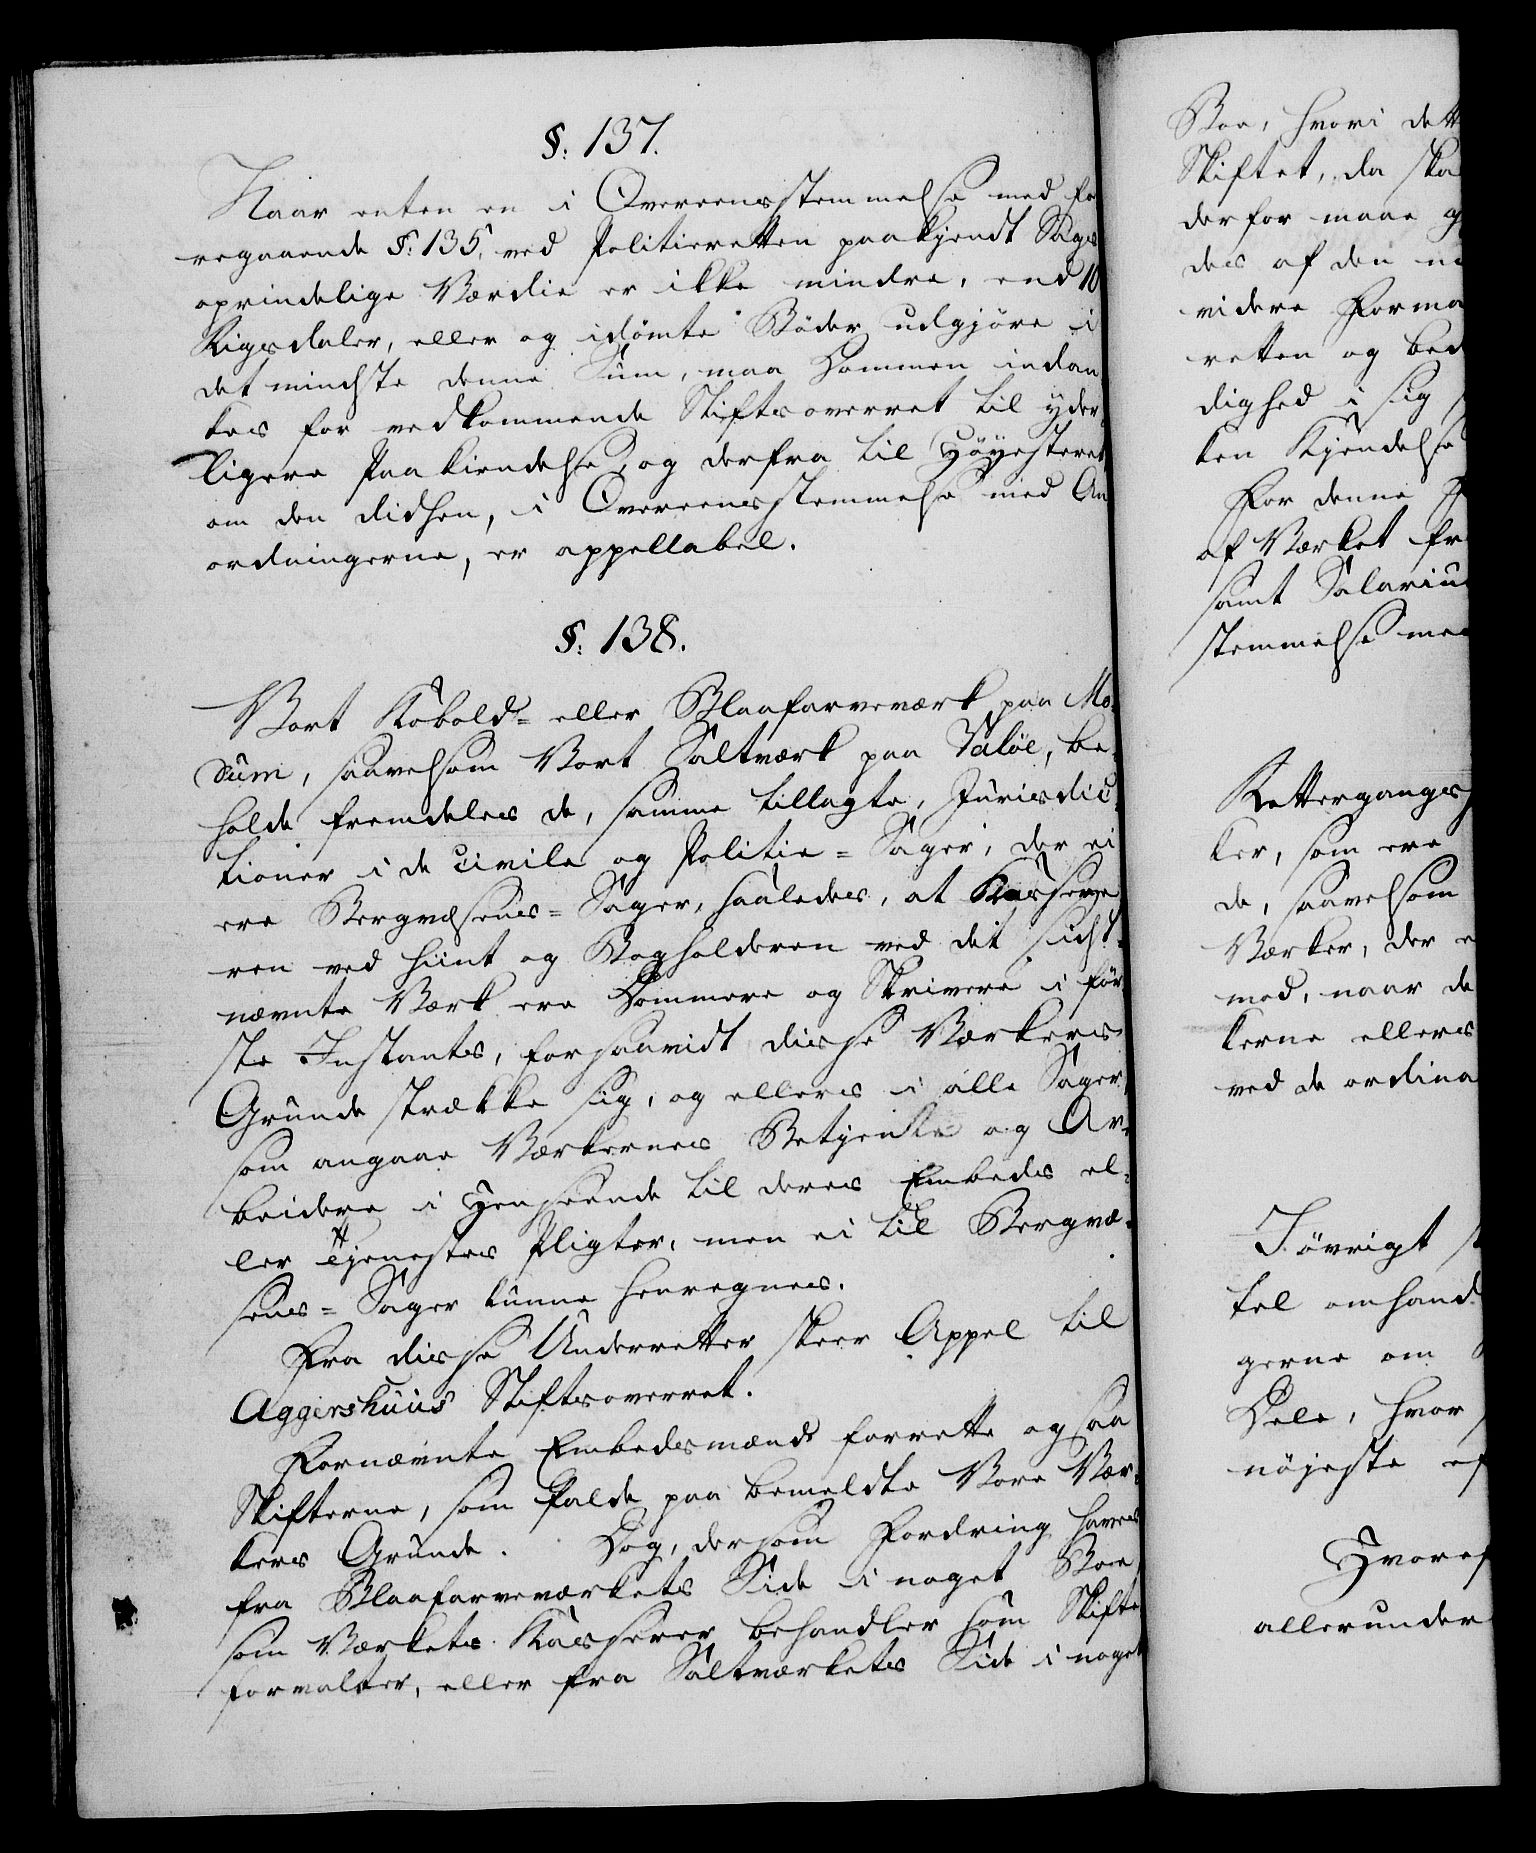 §. 137.
Naar enten en i Overeensstemmelse med fo
regaaende §. 135. ved Politieretten paakjendt Sags
oprindelige Værdie er ikke mindre, end 10
Rigsdaler, eller og idömte Böder udgjöre i
det mindste denne Sum, maa Dommen indan
kes for vedkommende Stiftsoverret til yder
ligere Paakiendelse, og derfra til Höyesteret
om den didhen, i Overeensstemmelse med An
ordningerne, er appellabel.
§. 138.
Vort Kobold= eller Blaafarveværk paa Mo-
dum, saavelsom Vort Saltværk paa Valöe, be-
holde fremdeles de, samme tillagte, Jurisdic-
tioner i de civile og Politie=Sager, der ei
ere Bergvæsens=Sager, saaledes, at Kassere
ren ved hiint og Bogholderen ved det sidst-
nævnte Værk ere Dommere og Skrivere i för
ste Instants, forsaavidt disse Værkers
Grunde strække sig, og ellers i alle Sager,
som angaae Værkernes Betjente og Ar-
beidere i Henseende til deres Embeds el-
ler Tjenestes Pligter, men ei til Bergvæ-
sens=Sager kunne henregnes.
Fra disse Underretter skeer Appel til
Aggershuus Stiftsoverret.
Fornævnte Embedsmænd forrette ogsaa
Skifterne, som falde paa bemeldte Vore Vær-
kers Grunde. Dog, dersom Fordring haves
fra Blaafarveværkets Side i noget Boe,
som Værkets Kasserer behandler som Skifte
forvalter, eller fra Saltværkets Side i noget
Boe, hvori dett
Skiftet, da ska
derfor maae g
des af den n
videre Forma
retten og bed
dighed i sig
ken Kjendelse
For denne
af Værket fr
samt Salariu
stemmelse med
Rettergangs
ker, som ere
de, saavelsom
Værker, der e
med, naar de
kerne ellers
ved de ordina
I övrigt s
tel omhand
gerne om
Dele, hvor
nöjeste ef
Hvoref
allerunder